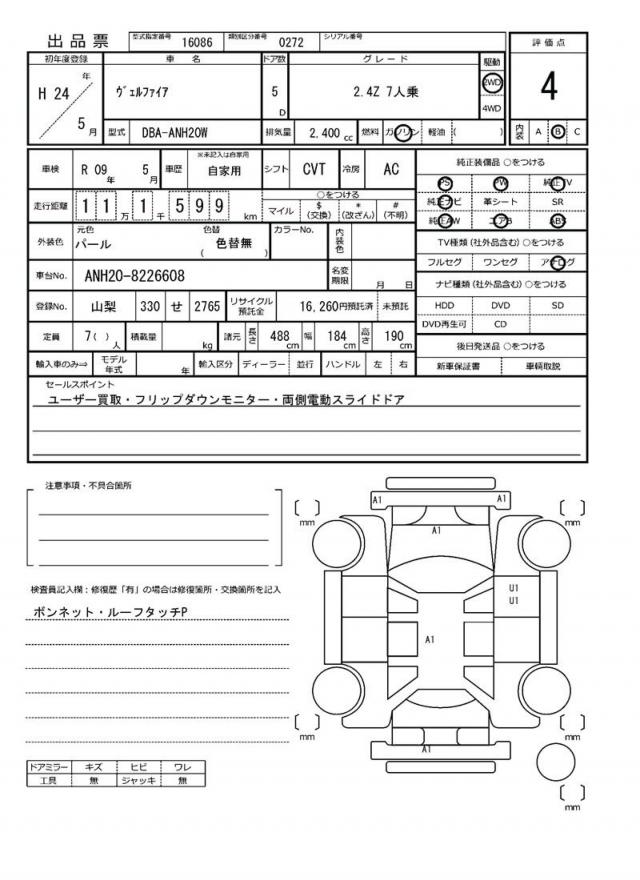 出品票 型式指定番号 16086 類別区分番号 0272 シリアル番号
初年度登録 車名 ドア数 グレード 駆動 評価点
H 24 年 5 月 ヴェルファイア 5 D 2.4Z 7人乗 2WD 4WD 4
型式 DBA-ANH20W 排気量 2,400 cc 燃料 ガソリン 軽油 ( ) 内装 A B C
車検 R 09 年 5 月 車歴 ※未記入は自家用 自家用 シフト CVT 冷房 AC
純正装備品 ○をつける
PS PW 純正TV
純正ナビ 革シート SR
純正AW エアB ABS
走行距離 1 1 万 1 千 5 9 9 km ○をつける マイル $ (交換) * (改ざん) # (不明)
外装色 元色 パール 色替 ( 色替無 ) カラーNo. 内装色
TV種類 (社外品含む) ○をつける
フルセグ ワンセグ アナログ
車台No. ANH20-8226608 名変期限 月 日
ナビ種類 (社外品含む) ○をつける
HDD DVD SD
DVD再生可 CD
登録No. 山梨 330 せ 2765 リサイクル預託金 16,260円預託済 未預託
定員 7( ) 人 積載量 kg 諸元 長さ 488 cm 幅 184 cm 高さ 190 cm
後日発送品 ○をつける
新車保証書 車輌取説
輸入車のみ⇒ モデル年式 年 輸入区分 ディーラー 並行 ハンドル 左 右
セールスポイント
ユーザー買取・フリップダウンモニター・両側電動スライドドア
注意事項・不具合箇所
検査員記入欄：修復歴「有」の場合は修復箇所・交換箇所を記入
ボンネット・ルーフタッチP
A1 A1
A1
U1
U1
A1
A1
mm mm
mm mm
mm
ドアミラー キズ ヒビ ワレ
工具 無 ジャッキ 無